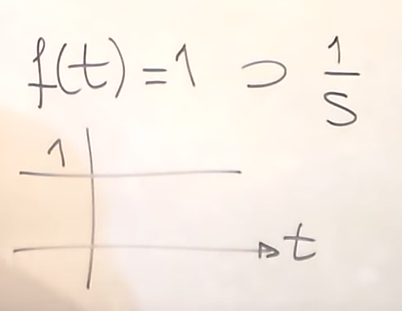 f(t) = 1 ⊃ 1/S
1
t